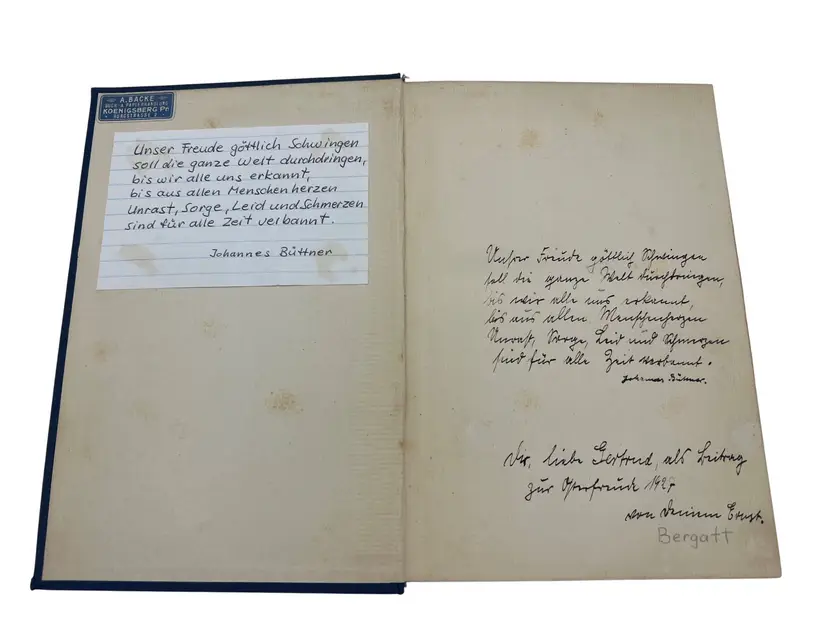 A. BACKE
BUCH- & PAPIERHANDLUNG
KOENIGSBERG Pr.
Unser Freude göttlich Schwingen
soll die ganze Welt durchdringen,
bis wir alle uns erkannt,
bis aus allen Menschenherzen
Unrast, Sorge, Leid und Schmerzen
sind für alle Zeit verbannt.
Johannes Büttner
Unsrer Freude göttlich Schwingen
soll die ganze Welt durchdringen,
bis wir alle uns erkannt,
bis aus allen Menschenherzen
Unrast, Sorge, Leid und Schmerzen
sind für alle Zeit verbannt.
Johannes Büttner.
Dir, liebe Gertrud, als Beitrag
zur Osterfreude 1927
von Deinem Ernst.
Bergatt